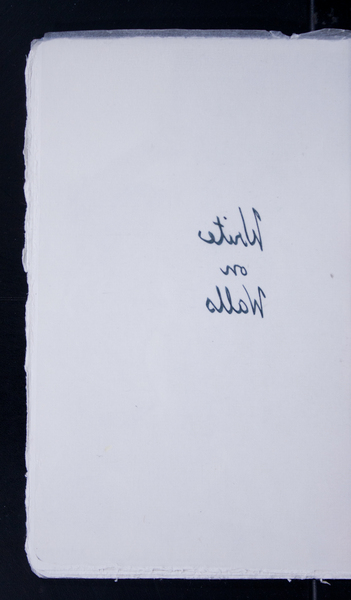 Write
on
Walls